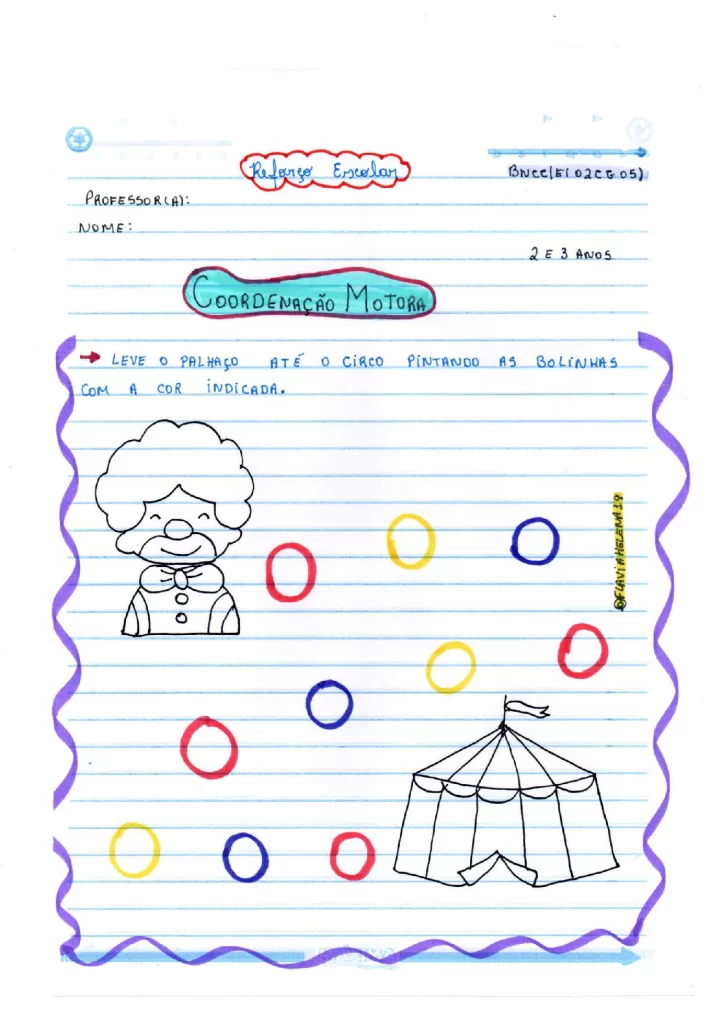 Reforço Escolar
BNCC(EI02CG05)
PROFESSOR(A):
NOME:
2 E 3 ANOS
COORDENAÇÃO MOTORA
LEVE O PALHAÇO ATÉ O CIRCO PINTANDO AS BOLINHAS
COM A COR INDICADA.
@FLAVIAHELENA19